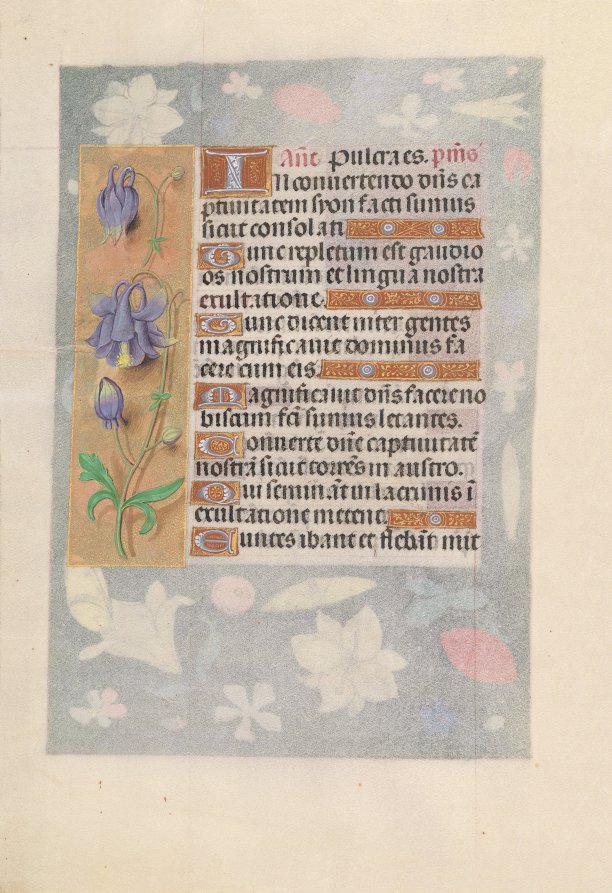 Añe Pulcra es. pm̃s
In conuertendo dñs ca
ptiuitatem syon facti sumus
sicut consolati
Tunc repletum est gaudio
os nostrum et lingua nostra
exultatione.
Tunc dicent inter gentes
magnificauit dominus fa
cere cum eis.
Magnificauit dñs facere no
biscum fc̃i sumus letantes.
Conuerte dñe captiuitatẽ
nostrã sicut torrẽs in austro.
Qui seminãt in lacrimis ĩ
exultatione metent.
Euntes ibant et flebãt mit